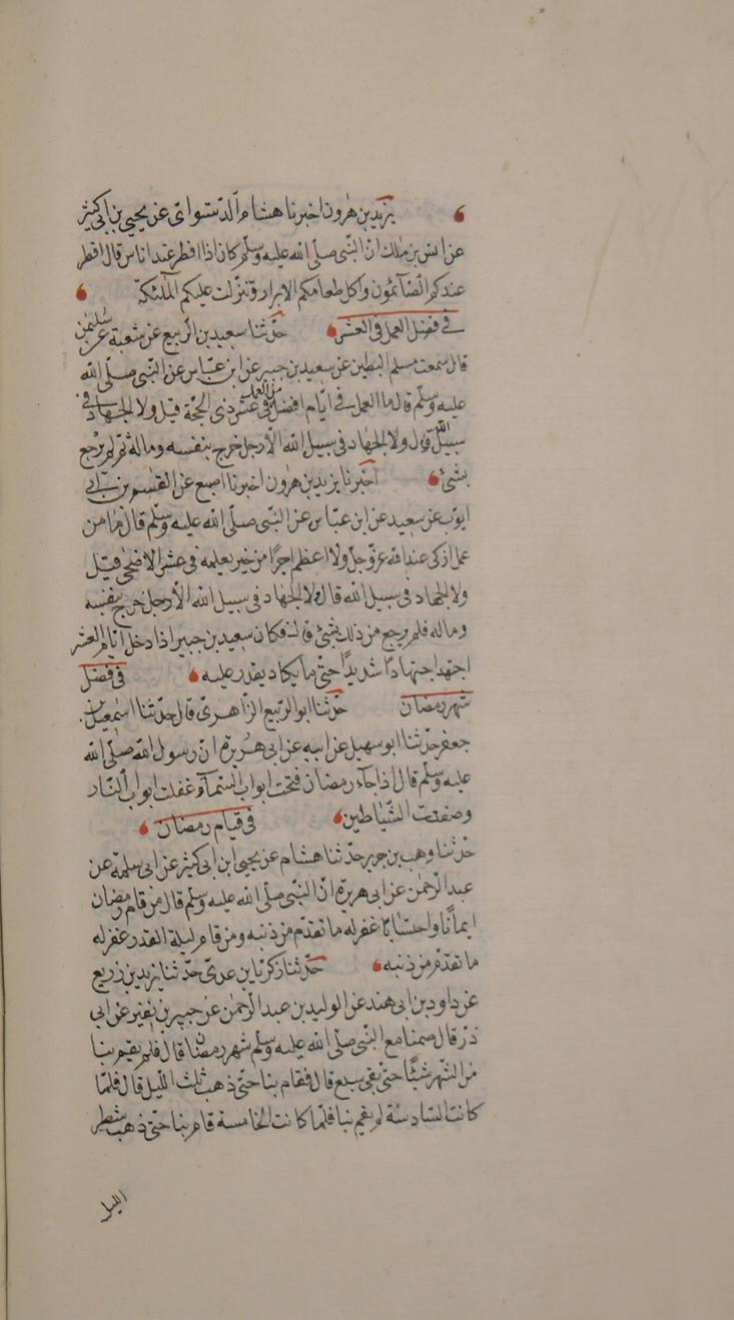 يزيد بن هٰرون اخبرنا هشام الدّستوائى عن يحيى بن ابى كثير
عن انس بن مٰلك انّ النّبى صلّى الله عليه وسلّم كان اذا افطر عند اناس قال افطر
عندكم الصّآئمون واكل طعامكم الابرار وتنزّلت عليكم الملٰئكة
فى فضل العمل فى العشر حدّثنا سعيد بن الرّبيع عن شعبة عن سليمٰن
قال سمعت مسلم البطين عن سعيد بن جبير عن ابن عبّاس عن النّبى صلّى الله
عليه وسلّم قال ما العمل فى ايّام افضل من العمل فى عشر ذى الحجّة قيل ولا الجهاد فى
سبيل الله قال ولا الجهاد فى سبيل الله الّا رجل خرج بنفسه وماله ثمّ لم يرجع
بشئ اخبرنا يزيد بن هٰرون اخبرنا اصبغ عن القٰسم بن ابى
ايّوب عن سعيد عن ابن عبّاس عن النّبى صلّى الله عليه وسلّم قال ما من
عمل ازكى عند الله عزّ وجلّ ولا اعظم اجرًا من خير يعلمه فى عشر الاضحى قيل
ولا الجهاد فى سبيل الله قال ولا الجهاد فى سبيل الله الّا رجل خرج بنفسه
وماله فلم يرجع من ذلك بشئ قال فكان سعيد بن جبير اذا دخل ايّام العشر
اجتهد اجتهادًا شديدًا حتّى ما يكاد يقدر عليه فى فضل
شهر رمضان حدّثنا ابو الرّبيع الزّاهرىّ قال حدّثنا اسمٰعيل بن
جعفر حدّثنا ابو سهيل عن ابيه عن ابى هريرة انّ رسول الله صلّى الله
عليه وسلّم قال اذا جآء رمضان فتحت ابواب السّمآء غلقت ابواب النّار
وصفدت الشّياطين فى قيام رمضان
حدّثنا وهب بن جرير حدّثنا هشام عن يحيى ابن ابى كثير عن ابى سلمة عن
عبد الرّحمٰن عن ابى هريرة انّ النّبى صلّى الله عليه وسلّم قال من قام رمضان
ايمانًا واحتسابًا غفر له ما تقدّم من ذنبه ومن قام ليلة القدر غفر له
ما تقدّم من ذنبه حدّثنا زكريّا بن عدىّ حدّثنا يزيد بن زريع
عن داود بن ابى هند عن الوليد بن عبد الرّحمٰن عن جبير بن نفير عن ابى
ذرّ قال صمنا مع النّبى صلّى الله عليه وسلّم شهر رمضان قال فلم يقم بنا
من الشّهر شيئًا حتّى بقى سبع قال فقام بنا حتّى ذهب ثلث اللّيل قال فلمّا
كانت السّادسة لم يقم بنا فلمّا كانت الخامسة قام بنا حتّى ذهب شطر
اللّيل